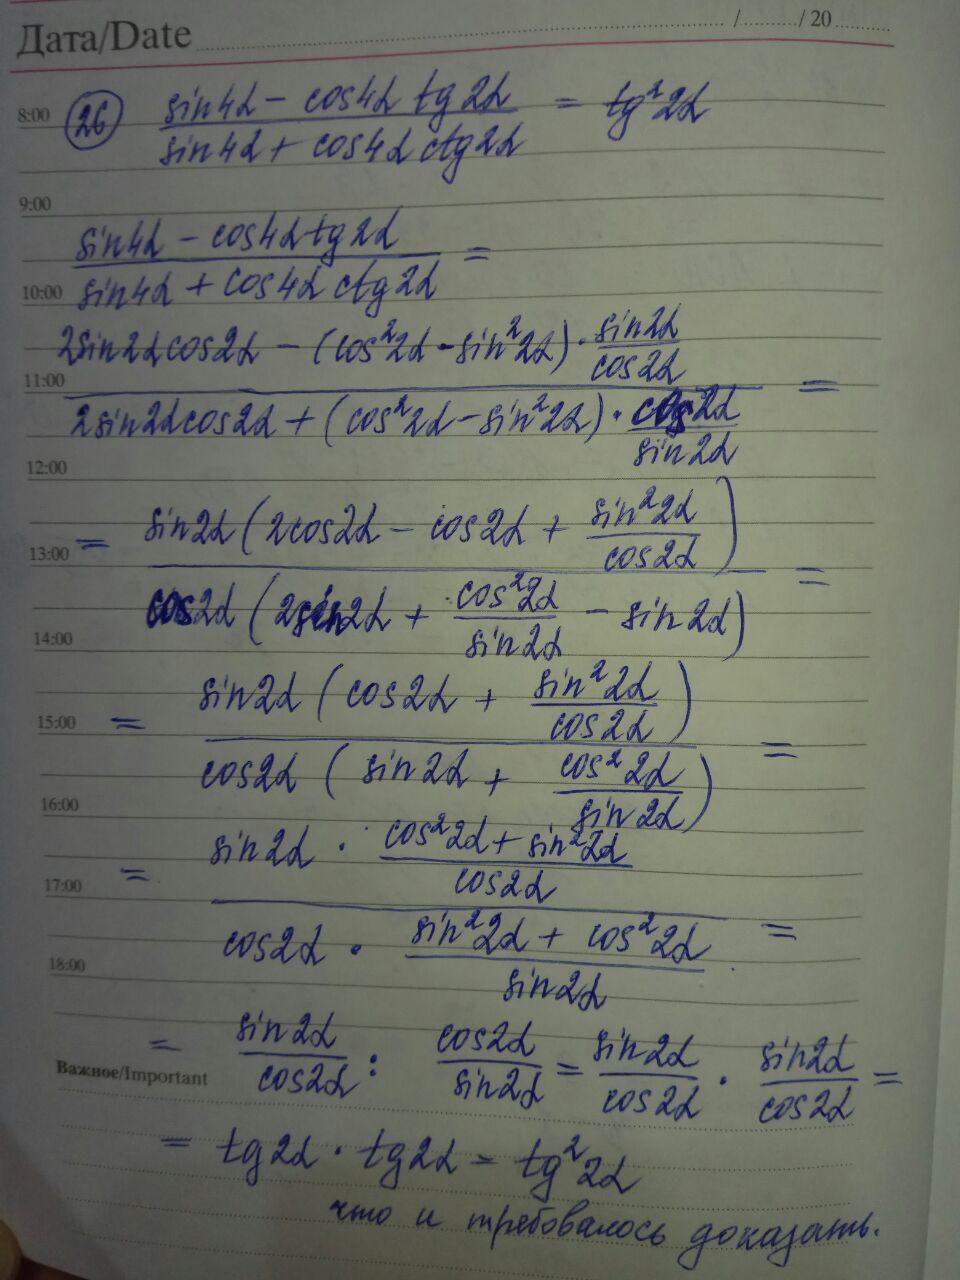 Дата/Date ........ / ........ / 20 ........
8:00 (26) (sin4α − cos4α tg2α)/(sin4α + cos4α ctg2α) = tg²2α
9:00
(sin4α − cos4α tg2α)/(sin4α + cos4α ctg2α) =
10:00
(2sin2αcos2α − (cos²2α − sin²2α) · sin2α/cos2α)/(2sin2αcos2α + (cos²2α − sin²2α) · cos2α/sin2α) =
11:00
12:00
= (sin2α(2cos2α − cos2α + sin²2α/cos2α))/(cos2α(2sin2α + cos²2α/sin2α − sin2α)) =
13:00
14:00
= (sin2α(cos2α + sin²2α/cos2α))/(cos2α(sin2α + cos²2α/sin2α)) =
15:00
16:00
= (sin2α · (cos²2α + sin²2α)/cos2α)/(cos2α · (sin²2α + cos²2α)/sin2α) =
17:00
18:00
= sin2α/cos2α : cos2α/sin2α = sin2α/cos2α · sin2α/cos2α =
Важное/Important
= tg2α · tg2α = tg²2α
что и требовалось доказать.